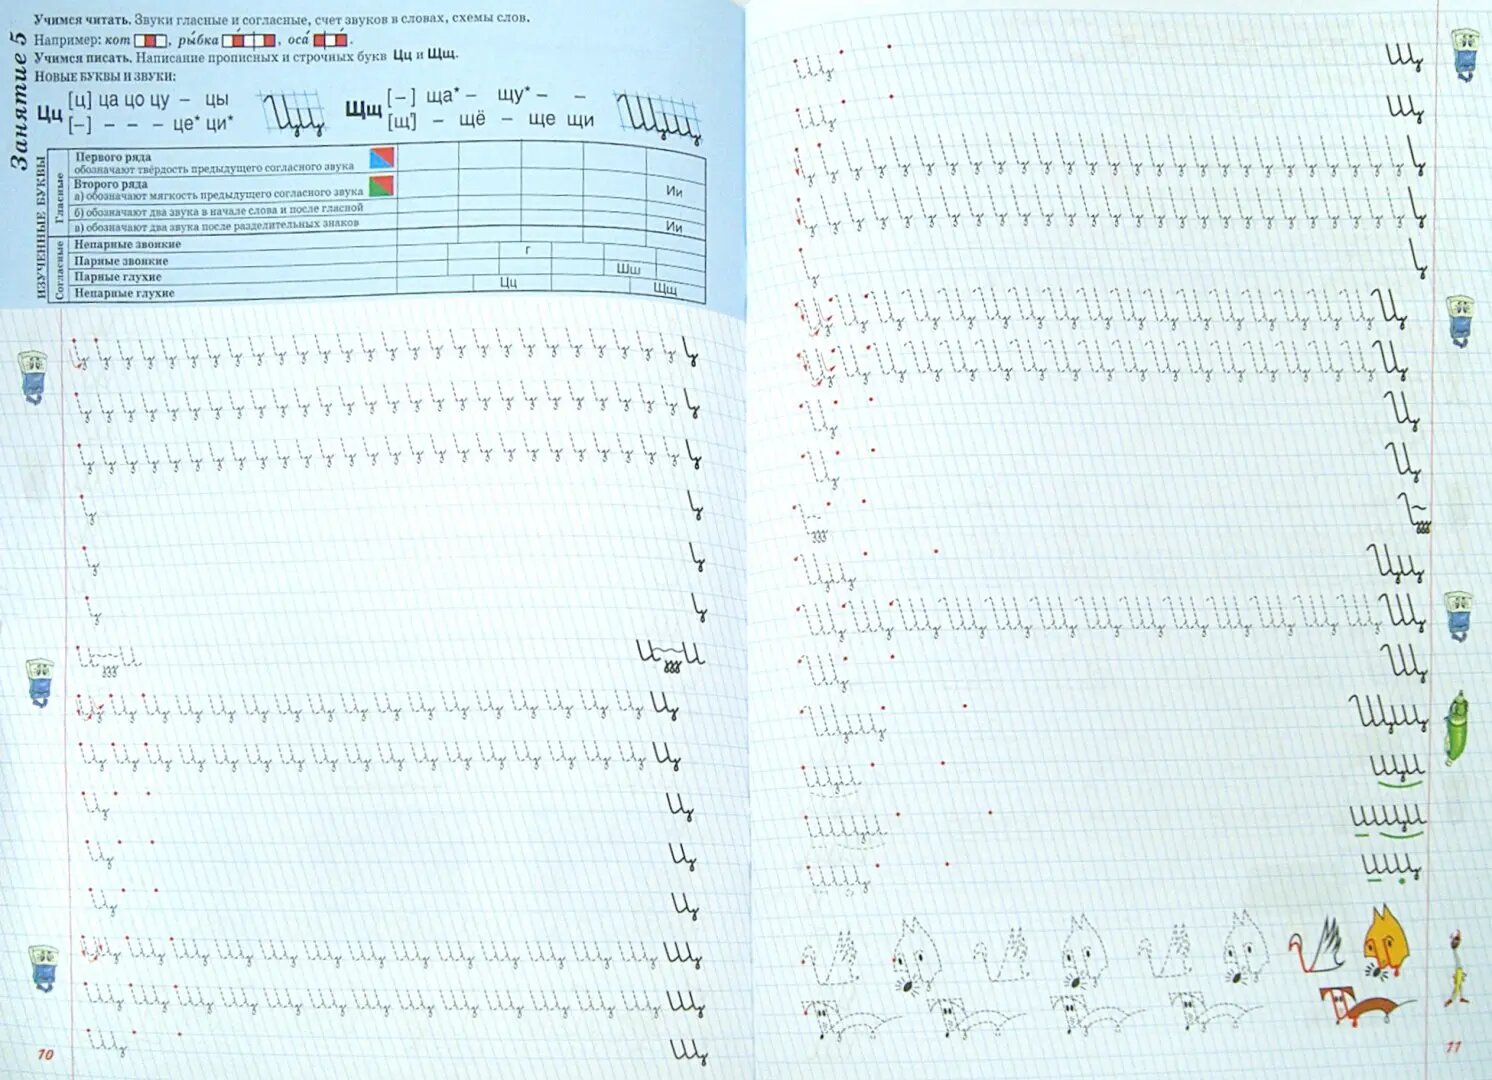 Занятие 5
Учимся читать. Звуки гласные и согласные, счет звуков в словах, схемы слов.
Например: кот , ры́бка , оса́ .
Учимся писать. Написание прописных и строчных букв Цц и Щщ.
НОВЫЕ БУКВЫ И ЗВУКИ:
Цц [ц] ца цо цу – цы
[–] – – – це* ци*
Цц
Щщ [–] ща* – щу* – –
[щ'] – щё – ще щи
Щщ
ИЗУЧЕННЫЕ БУКВЫ
Гласные
Первого ряда
обозначают твёрдость предыдущего согласного звука
Второго ряда
а) обозначают мягкость предыдущего согласного звука Ии
б) обозначают два звука в начале слова и после гласной
в) обозначают два звука после разделительных знаков Ии
Согласные
Непарные звонкие
Парные звонкие г
Парные глухие Шш
Непарные глухие Цц Щщ
ц
ц
ц
ц
ц
щ
щ
щ
10
щ
щ
Ц
Ц
Ц
Ц
Цц
Щ
Щ
Щщ
щи
щ
11